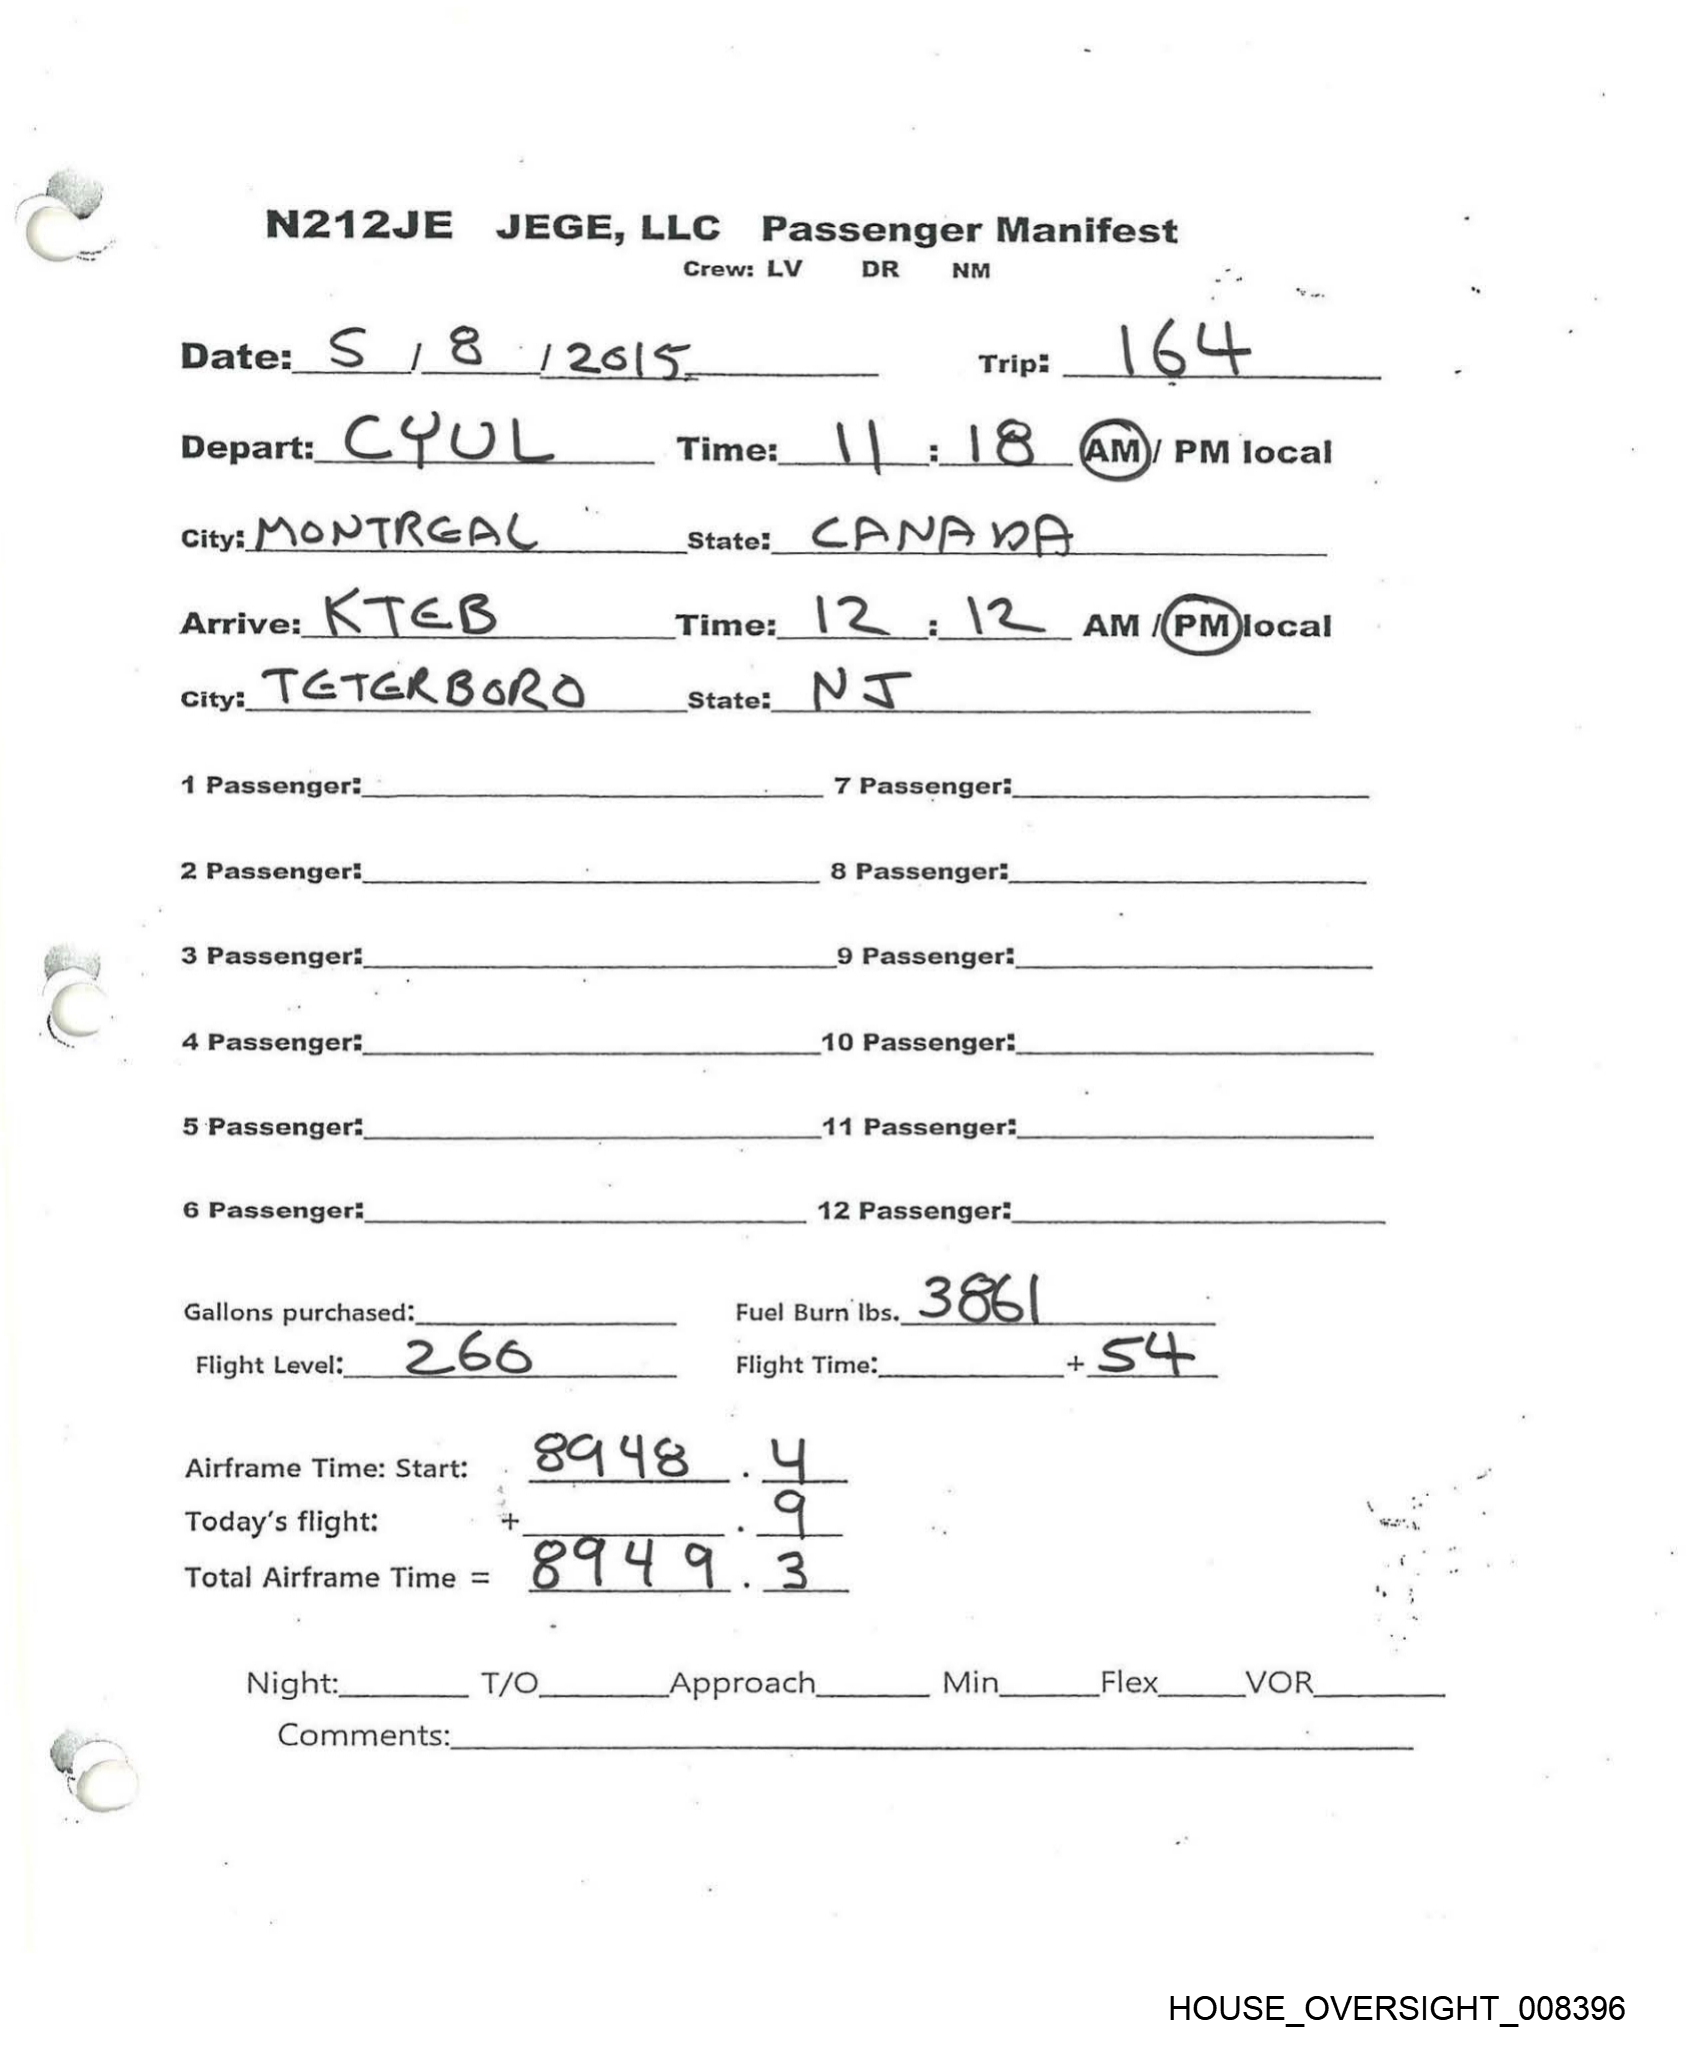 N212JE JEGE, LLC Passenger Manifest
Crew: LV DR NM
Date: 5 / 8 / 2015 Trip: 164
Depart: CYUL Time: 11 : 18 AM / PM local
City: MONTREAL State: CANADA
Arrive: KTEB Time: 12 : 12 AM / PM local
City: TETERBORO State: NJ
1 Passenger: 7 Passenger:
2 Passenger: 8 Passenger:
3 Passenger: 9 Passenger:
4 Passenger: 10 Passenger:
5 Passenger: 11 Passenger:
6 Passenger: 12 Passenger:
Gallons purchased: Fuel Burn lbs. 3861
Flight Level: 260 Flight Time: + 54
Airframe Time: Start: 8948 . 4
Today's flight: + . 9
Total Airframe Time = 8949 . 3
Night: T/O Approach Min Flex VOR
Comments:
HOUSE_OVERSIGHT_008396